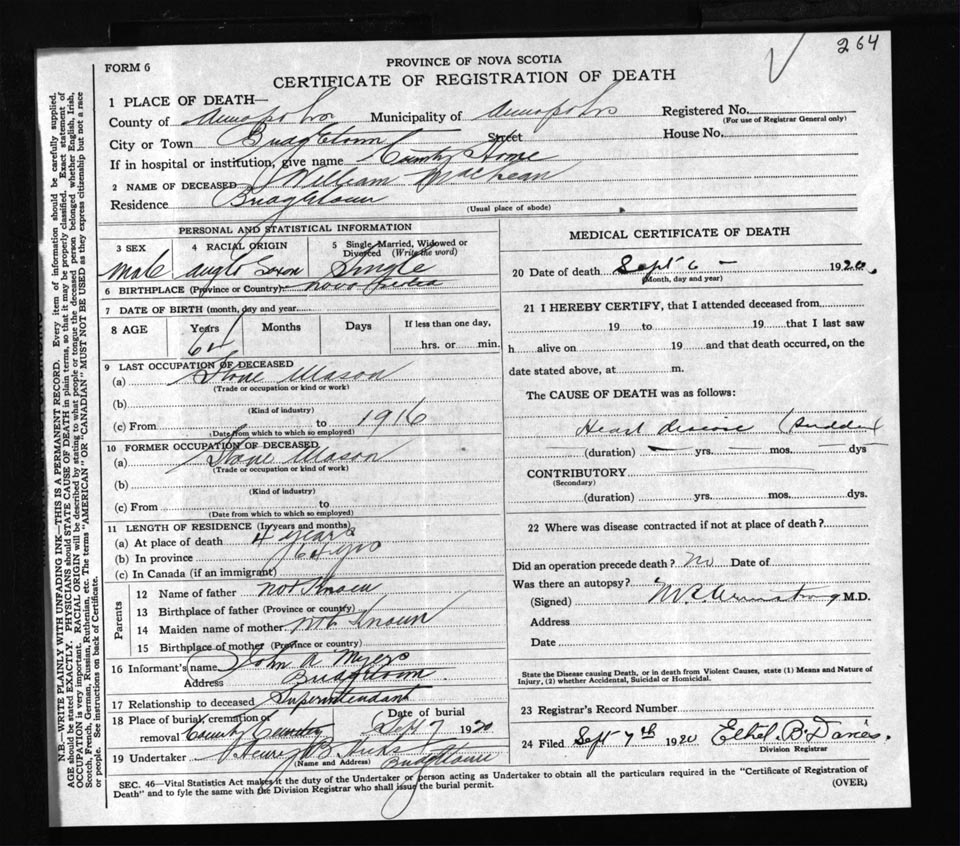 264
FORM 6
PROVINCE OF NOVA SCOTIA
CERTIFICATE OF REGISTRATION OF DEATH
1 PLACE OF DEATH—
County of Municipality of Registered No.
(For use of Registrar General only)
City or Town Bridgetown Street House No.
If in hospital or institution, give name County Home
2 NAME OF DECEASED William MacLean
Residence Bridgetown
(Usual place of abode)
PERSONAL AND STATISTICAL INFORMATION
3 SEX 4 RACIAL ORIGIN 5 Single, Married, Widowed or Divorced (Write the word)
Male Anglo Saxon Single
6 BIRTHPLACE (Province or Country) Nova Scotia
7 DATE OF BIRTH (month, day and year)
8 AGE Years Months Days If less than one day,
64 hrs. or min.
9 LAST OCCUPATION OF DECEASED
(a) Stone Mason
(Trade or occupation or kind or work)
(b)
(Kind of industry)
(c) From to 1916
(Date from which to which so employed)
10 FORMER OCCUPATION OF DECEASED
(a) Stone Mason
(Trade or occupation or kind of work)
(b)
(Kind of industry)
(c) From to
(Date from which to which so employed)
11 LENGTH OF RESIDENCE (In years and months)
(a) At place of death 4 years
(b) In province 64 yrs
(c) In Canada (if an immigrant)
Parents
12 Name of father not Known
13 Birthplace of father (Province or country)
14 Maiden name of mother not Known
15 Birthplace of mother (Province or country)
16 Informant's name John A Myers
Address Bridgetown
17 Relationship to deceased Superintendant
18 Place of burial, cremation or removal County Cemetery Date of burial Sept 7 1920
19 Undertaker Henry B Hicks Bridgetown
(Name and Address)
MEDICAL CERTIFICATE OF DEATH
20 Date of death Sept 6 – 1920.
(Month, day and year)
21 I HEREBY CERTIFY, that I attended deceased from
19 to 19 that I last saw
h alive on 19 and that death occurred, on the
date stated above, at m.
The CAUSE OF DEATH was as follows:
Heart disease (Sudden)
(duration) yrs. mos. dys
CONTRIBUTORY
(Secondary)
(duration) yrs. mos. dys.
22 Where was disease contracted if not at place of death?
Did an operation precede death? No Date of
Was there an autopsy?
(Signed) Armstrong M.D.
Address
Date
State the Disease causing Death, or in death from Violent Causes, state (1) Means and Nature of
Injury, (2) whether Accidental, Suicidal or Homicidal.
23 Registrar's Record Number
24 Filed Sept 7th 1920 Ethel B. Davies.
Division Registrar
SEC. 46—Vital Statistics Act makes it the duty of the Undertaker or person acting as Undertaker to obtain all the particulars required in the "Certificate of Registration of
Death" and to fyle the same with the Division Registrar who shall issue the burial permit. (OVER)
N.B.—WRITE PLAINLY WITH UNFADING INK—THIS IS A PERMANENT RECORD. Every item of information should be carefully supplied.
AGE should be stated EXACTLY. PHYSICIANS should STATE CAUSE OF DEATH in plain terms, so that it may be properly classified. Exact statement of
OCCUPATION is very important. RACIAL ORIGIN will be described by stating to what people or tongue the deceased person belonged whether English, Irish,
Scotch, French, German, Russian, Ruthenian, etc. The terms "AMERICAN" OR "CANADIAN" MUST NOT BE USED as they express citizenship but not a race
or people. See instructions on back of Certificate.